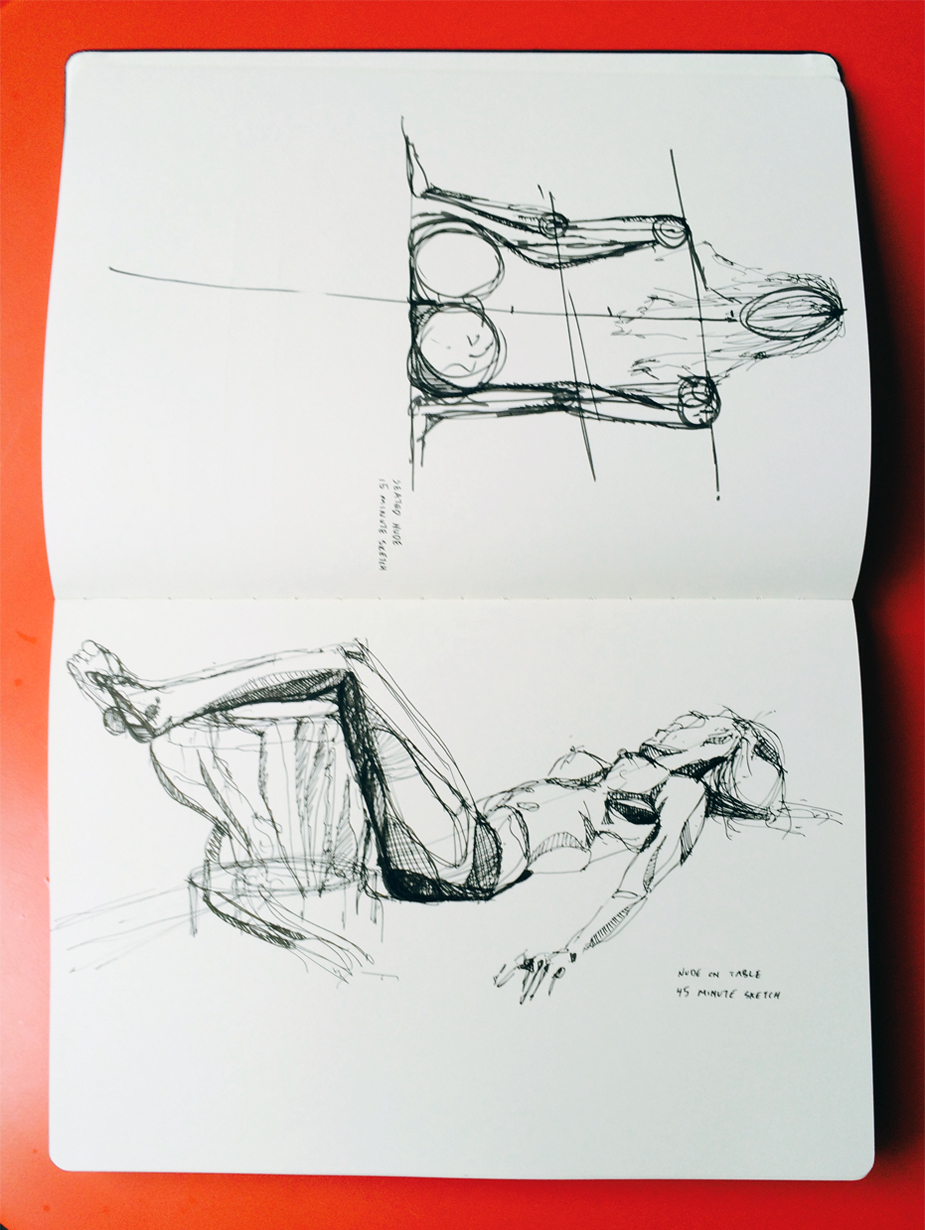 SEATED NUDE
15 MINUTE SKETCH
NUDE ON TABLE
45 MINUTE SKETCH